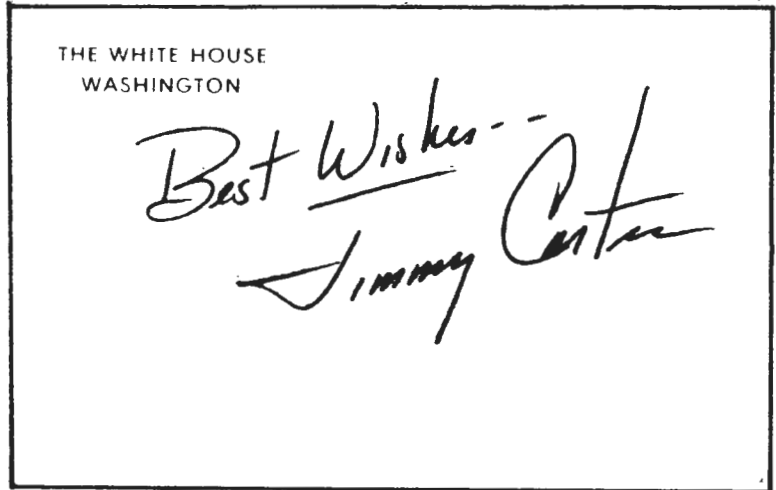 THE WHITE HOUSE
WASHINGTON
Best Wishes--
Jimmy Carter